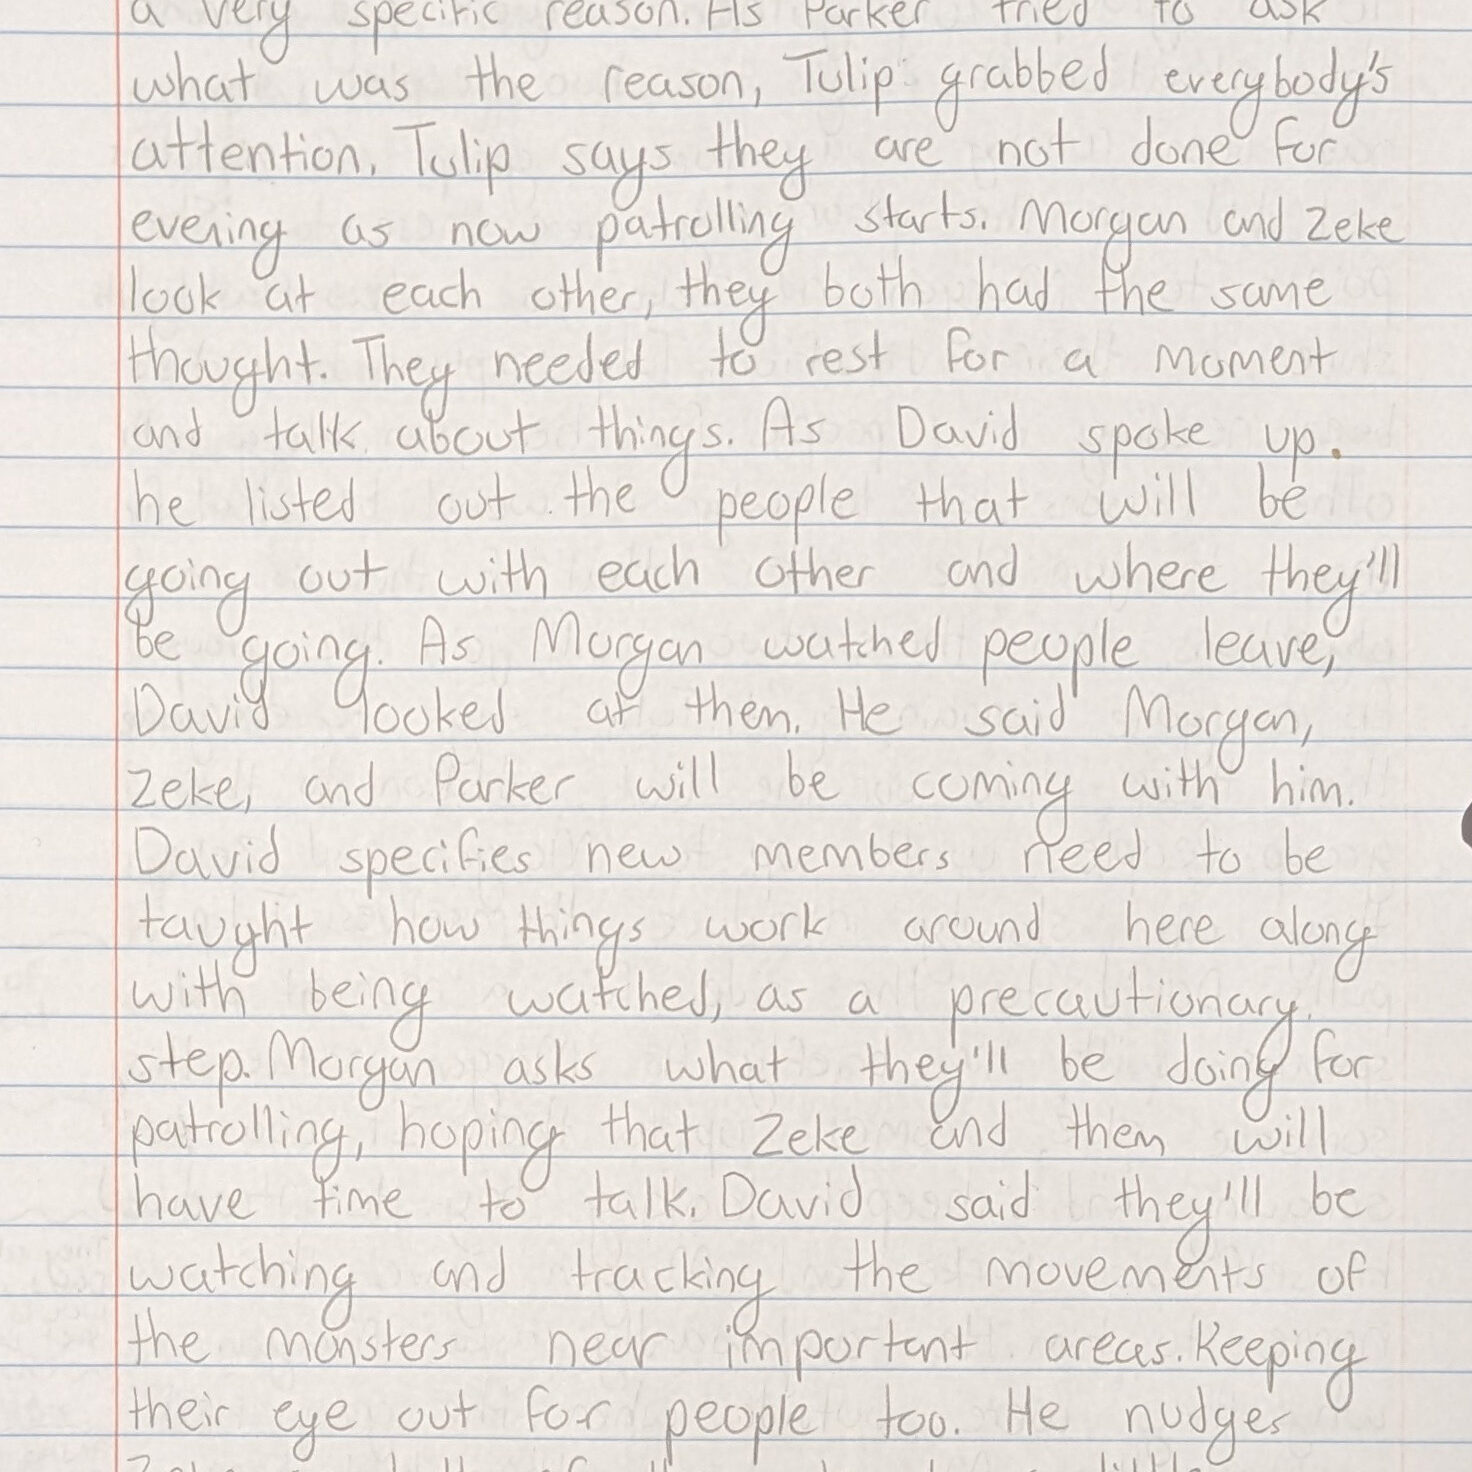 a very specific reason. As Parker tried to ask
what was the reason, Tulip grabbed everybody's
attention. Tulip says they are not done for
evening as now patrolling starts. Morgan and Zeke
look at each other, they both had the same
thought. They needed to rest for a moment
and talk about things. As David spoke up.
he listed out the people that will be
going out with each other and where they'll
be going. As Morgan watched people leave,
David looked at them. He said Morgan,
Zeke, and Parker will be coming with him.
David specifies new members need to be
taught how things work around here along
with being watched, as a precautionary
step. Morgan asks what they'll be doing for
patrolling, hoping that Zeke and them will
have time to talk. David said they'll be
watching and tracking the movements of
the monsters near important areas. Keeping
their eye out for people too. He nudges